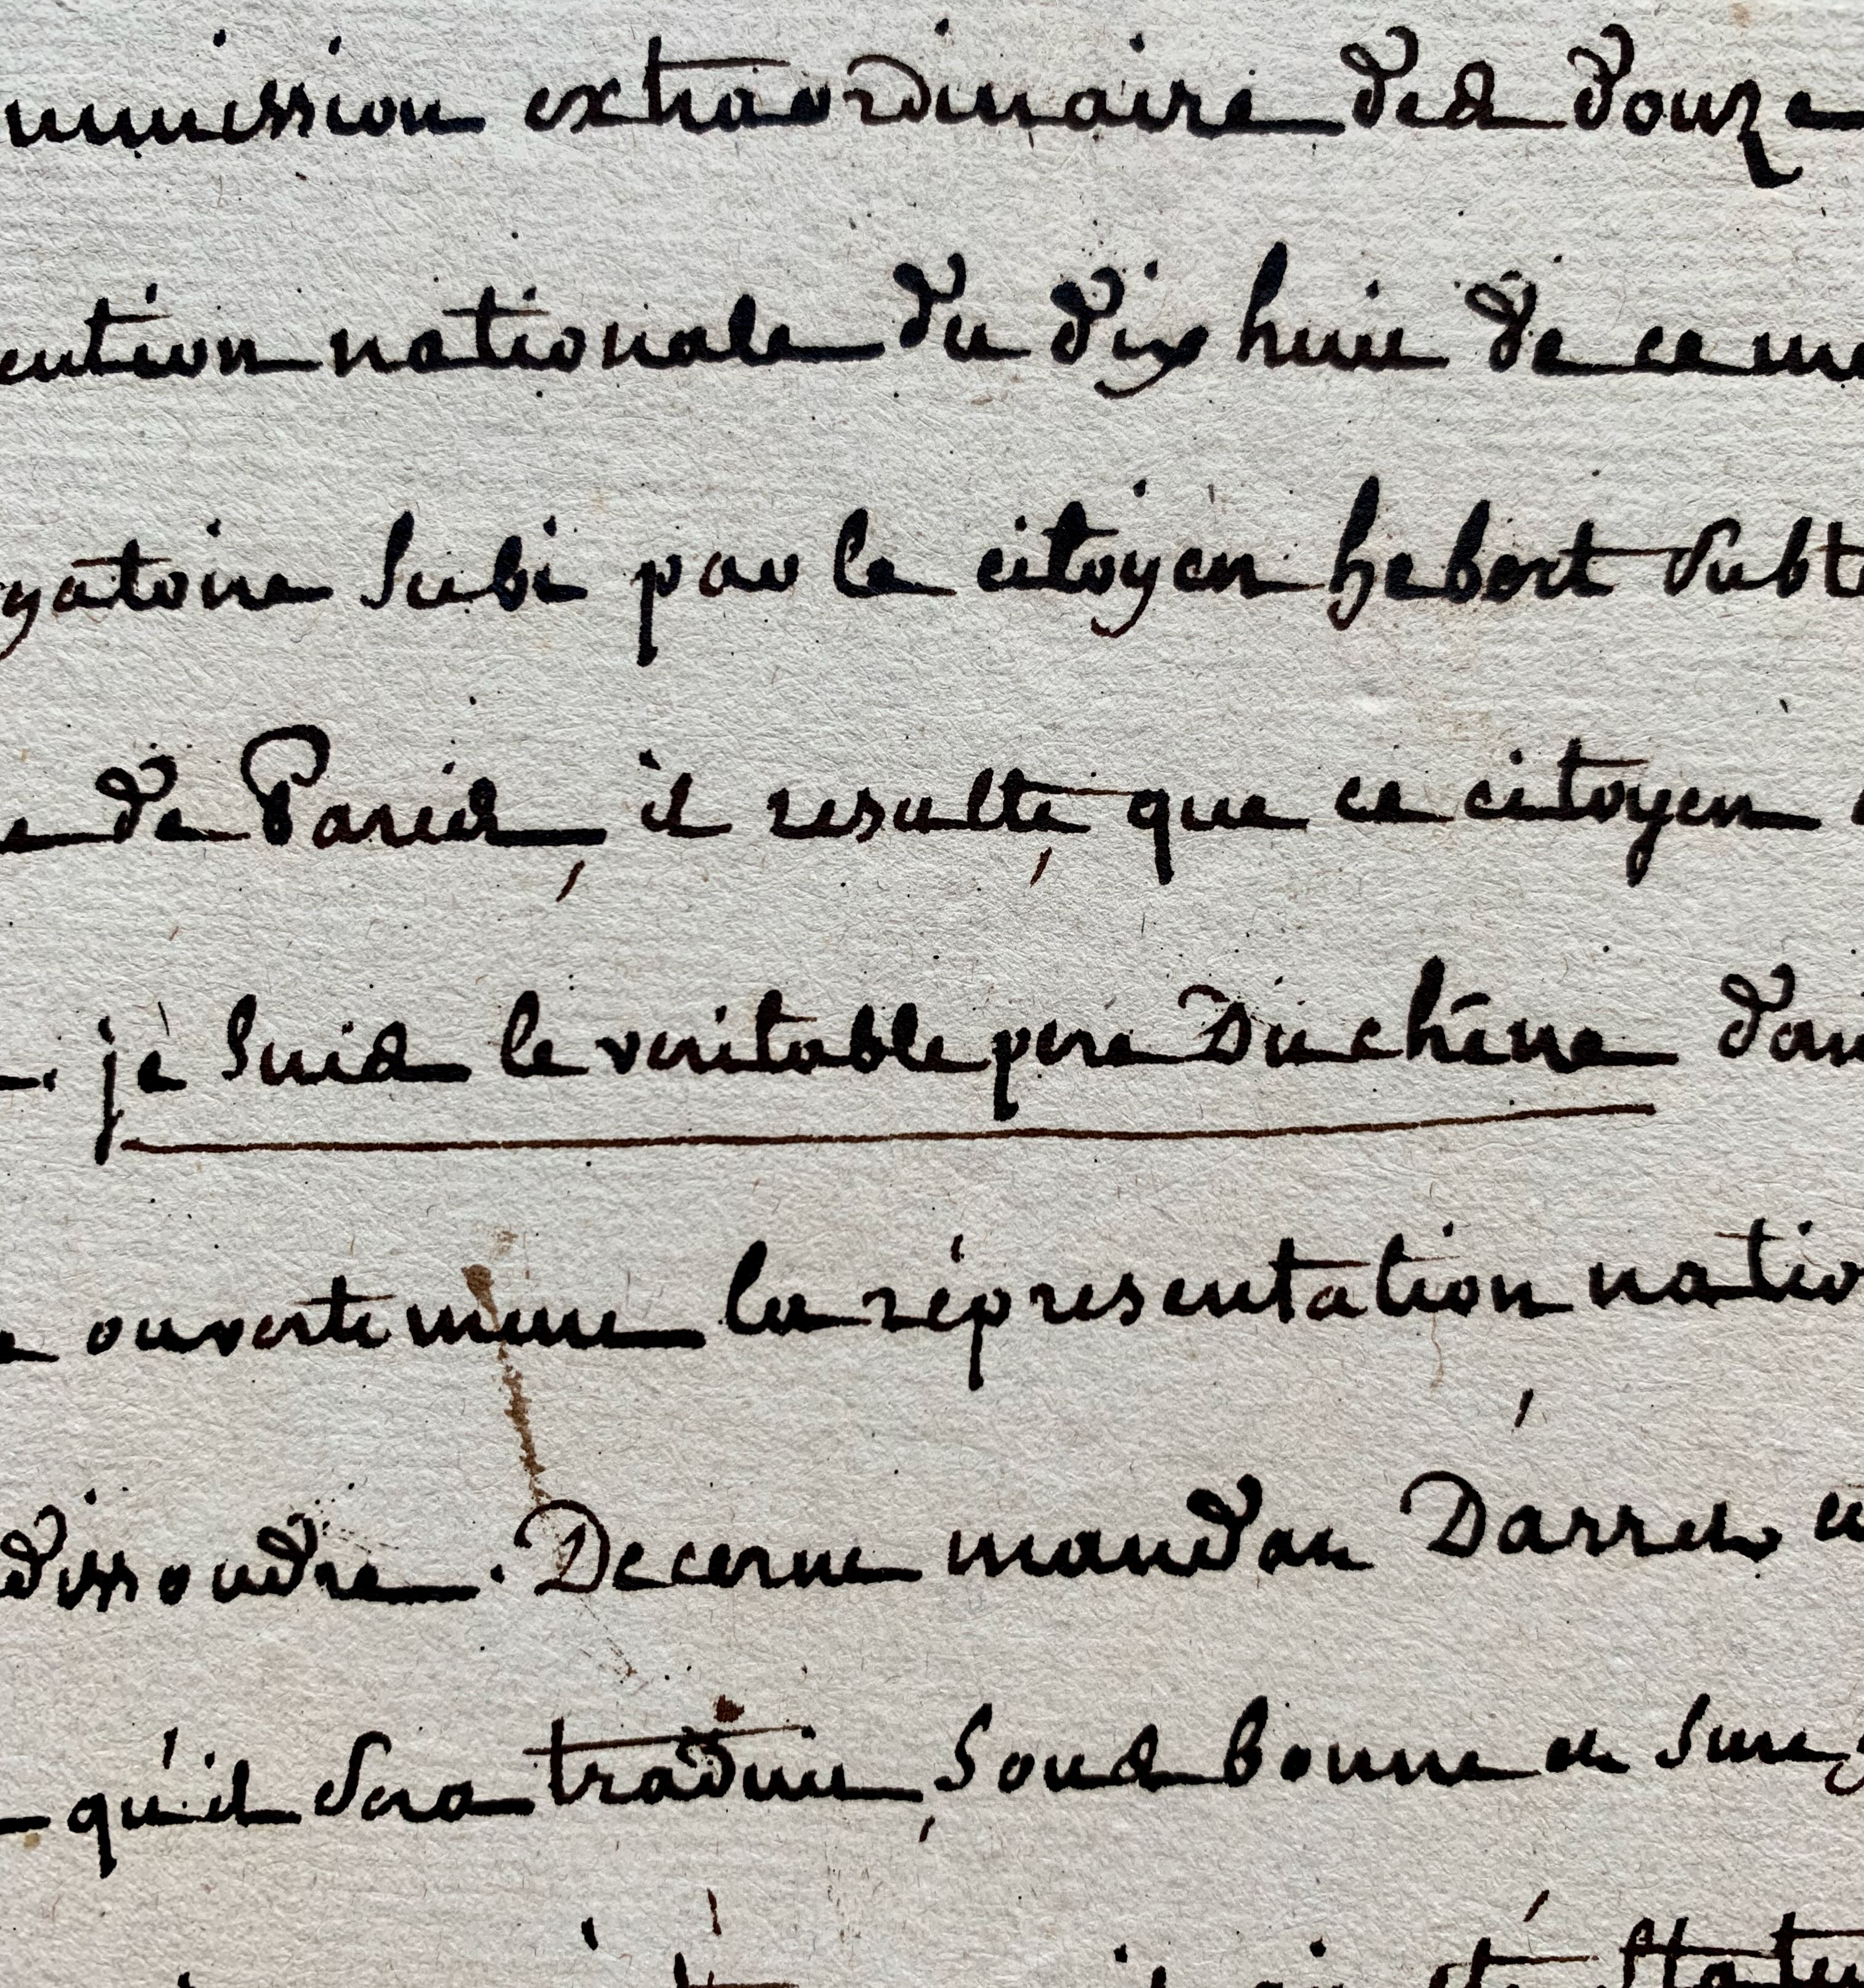 mmission extraordinaire des douze
ention nationale du dix huit de ce mo
gatoire subi par le citoyen hebert subt
e de Paris, il resulte que ce citoyen
. je suis le veritable pere Duchêne dan
ouvertement la répresentation natio
dissoudre. Decerne mandat Darrets et
qu'il sera traduit, sous bonne et sure g